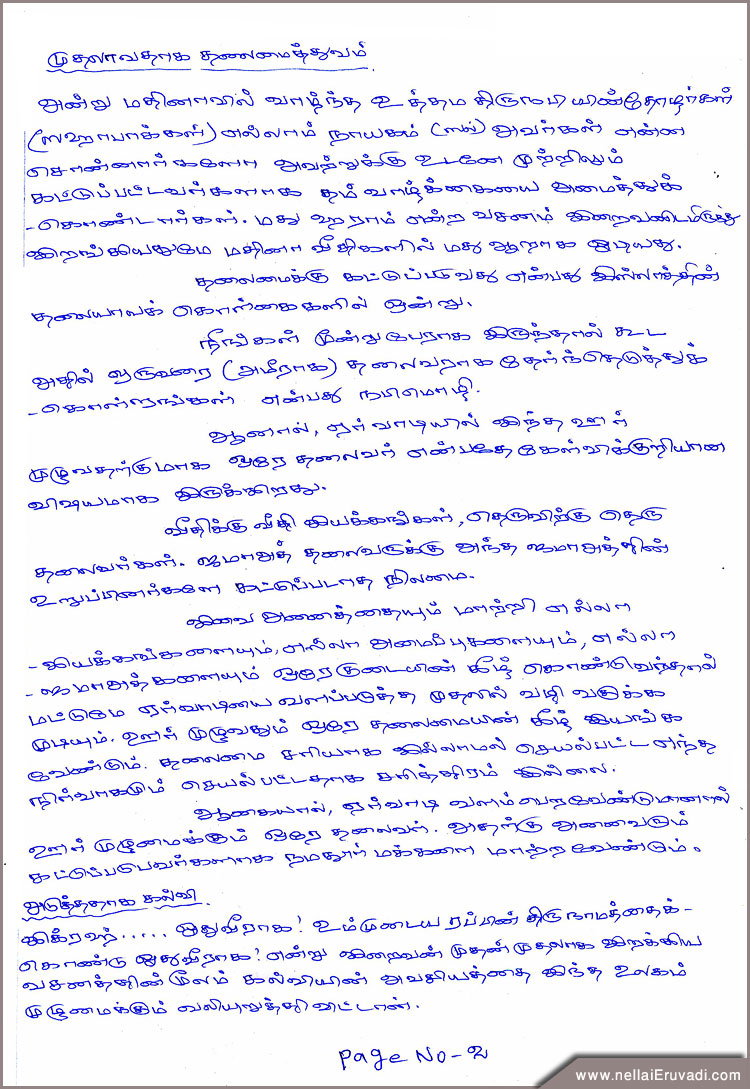 முதலாவதாக தலைமைத்துவம்
அன்று மதினாவில் வாழ்ந்த உத்தம திருநபியின்தோழர்கள்
(ஸஹாபாக்கள்) எல்லாம் நாயகம் (ஸல்) அவர்கள் என்ன
சொன்னார்களோ அவற்றுக்கு உடனே முற்றிலும்
கட்டுப்பட்டவர்களாக தம் வாழ்க்கையை அமைத்துக்
-கொண்டார்கள். மது ஹராம் என்ற வசனம் இறைவனிடமிருந்து
இறங்கியதுமே மதினா வீதிகளில் மது ஆறாக ஓடியது.
தலைமைக்கு கட்டுப்படுவது என்பது இஸ்லாத்தின்
தலையாயக் கொள்கைகளில் ஒன்று.
நீங்கள் மூன்றுபேராக இருந்தால் கூட
அதில் ஒருவரை (அமீராக) தலைவராக தேர்ந்தெடுத்துக்
-கொள்ளுங்கள் என்பது நபிமொழி.
ஆனால், ஏர்வாடியில் இந்த ஊர்
முழுவதற்குமாக ஒரே தலைவர் என்பதே கேள்விக்குறியான
விஷயமாக இருக்கிறது.
வீதிக்கு வீதி இயக்கங்கள், தெருவிற்கு தெரு
தலைவர்கள். ஜமாஅத் தலைவருக்கு அந்த ஜமாஅத்தின்
உறுப்பினர்களே கட்டுப்படாத நிலமை.
இவை அனைத்தையும் மாற்றி எல்லா
-இயக்கங்களையும், எல்லா அமைப்புகளையும், எல்லா
-ஜமாஅத்களையும் ஒரே குடையின் கீழ் கொண்டுவந்தால்
மட்டுமே ஏர்வாடியை வளப்படுத்த முதலில் வழி வகுக்க
முடியும். ஊர் முழுவதும் ஒரே தலைமையின் கீழ் இயங்க
வேண்டும். தலைமை சரியாக இல்லாமல் செயல்பட்ட எந்த
நிர்வாகமும் செயல்பட்டதாக சரித்திரம் இல்லை.
ஆகையால், ஏர்வாடி வளம்பெறவேண்டுமானால்
ஊர் முழுமைக்கும் ஒரே தலைவர். அதற்கு அனைவரும்
கட்டுப்படுபவர்களாக நமதூர் மக்களை மாற்ற வேண்டும்.
அடுத்ததாக கல்வி
இக்ரஹ்..... ஓதுவீராக! உம்முடைய ரப்பின் திருநாமத்தைக்-
கொண்டு ஓதுவீராக! என்று இறைவன் முதன் முதலாக இறக்கிய
வசனத்தின் மூலம் கல்வியின் அவசியத்தை இந்த உலகம்
முழுமைக்கும் வலியுறுத்தி விட்டான்.
Page No-2
www.nellaiEruvadi.com